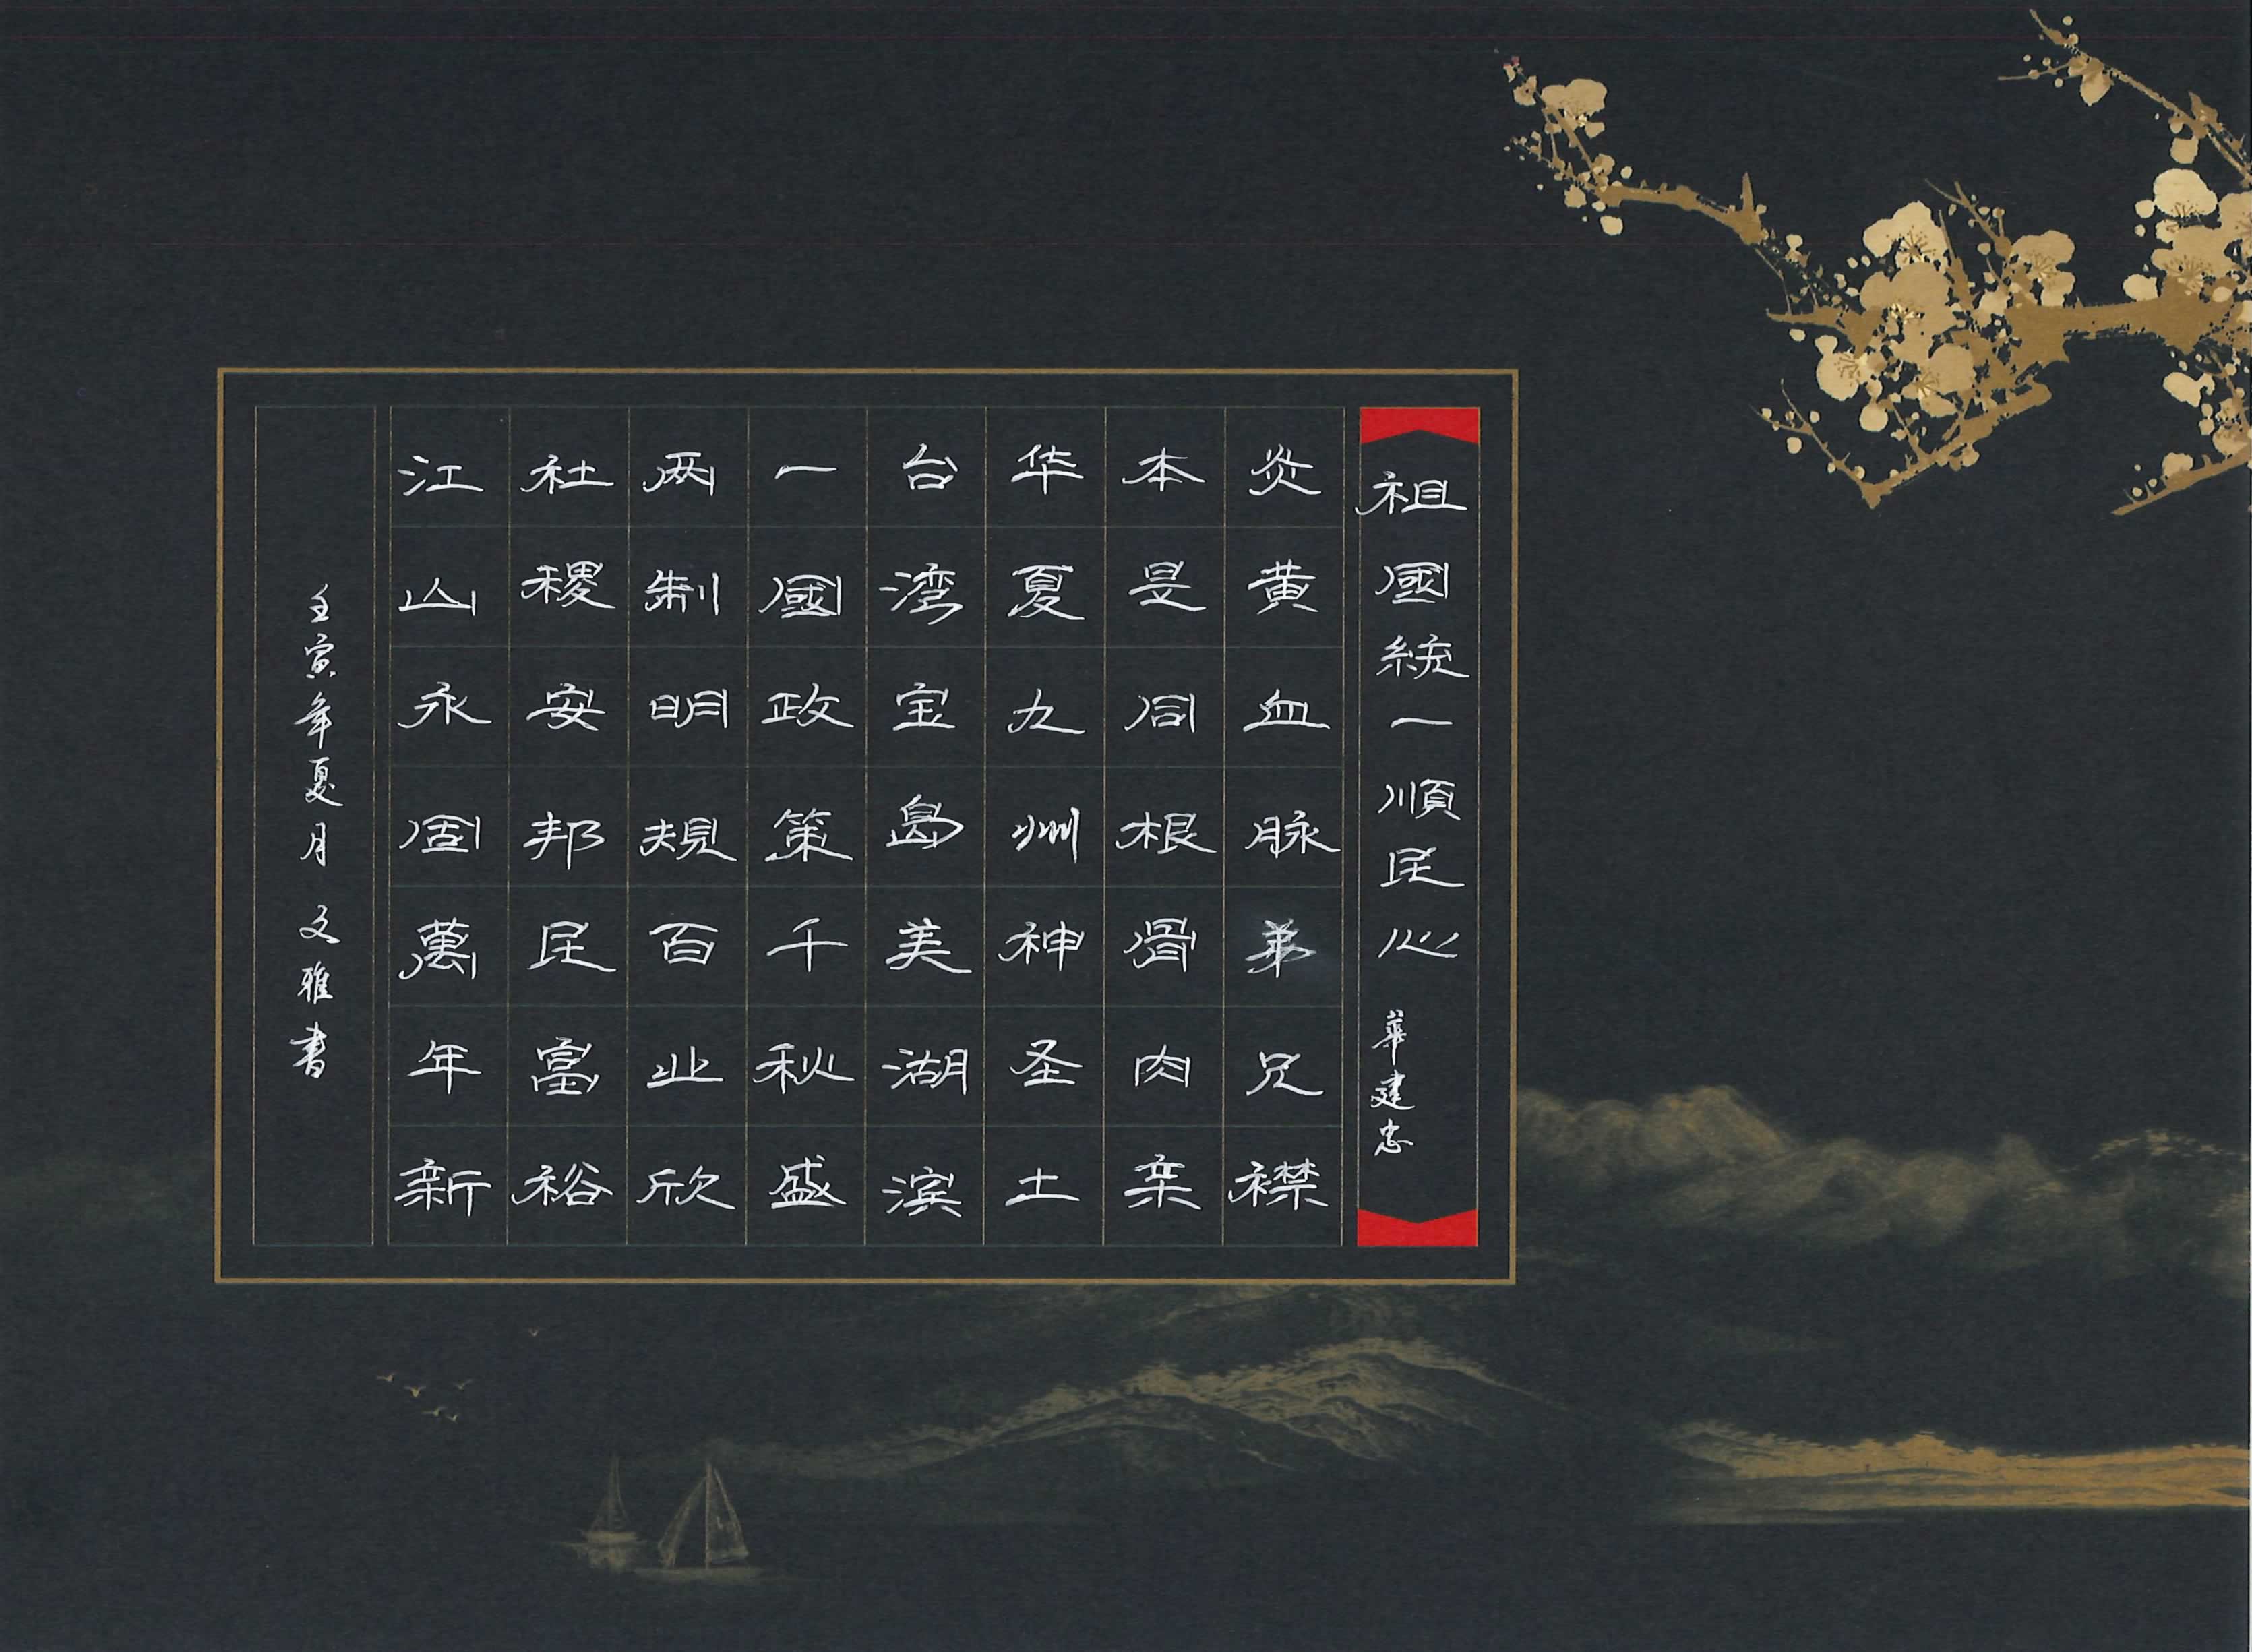 祖國統一順民心 華建忠
炎黄血脉弟兄襟
本是同根骨肉亲
华夏九州神圣土
台湾宝島美湖滨
一國政策千秋盛
两制明規百业欣
社稷安邦民富裕
江山永固萬年新
壬寅年夏月 文雅書